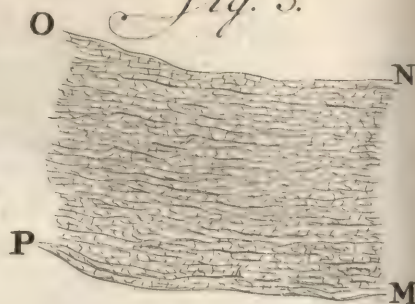 Fig. 3.
O
N
P
M